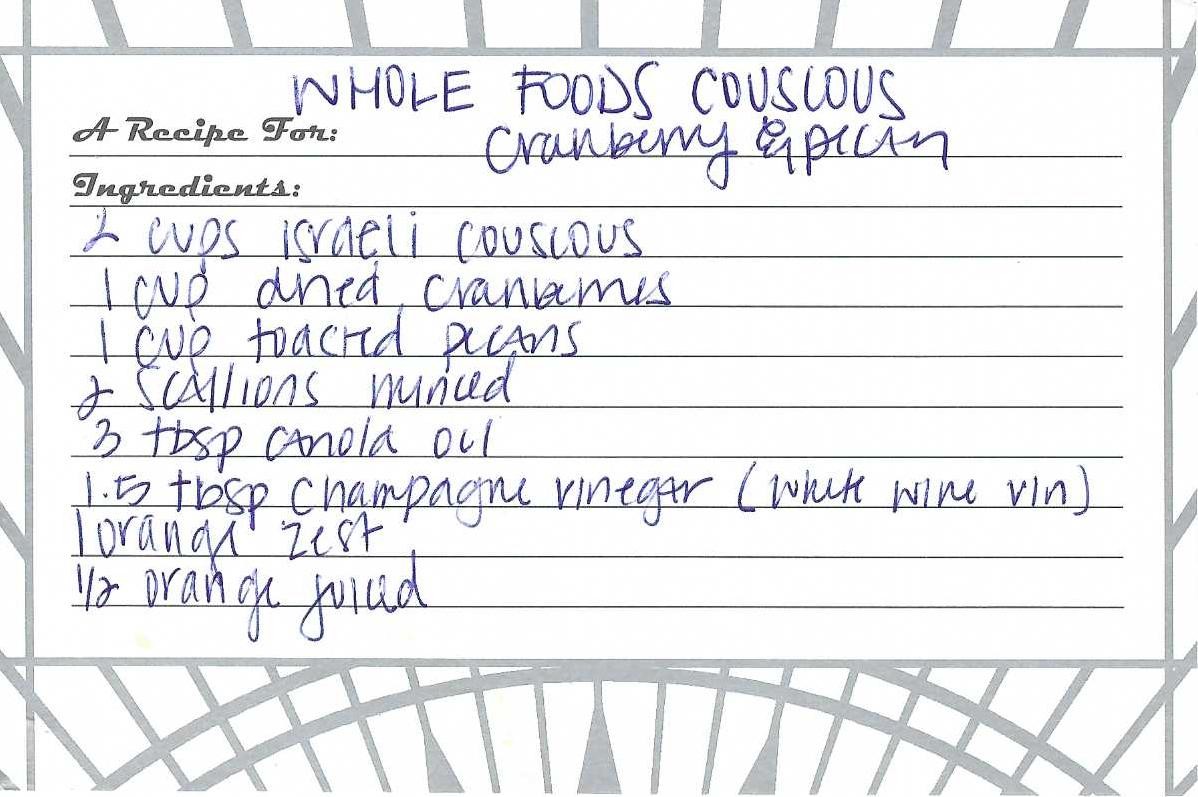 WHOLE FOODS COUSCOUS
A Recipe For: Cranberry & pecan
Ingredients:
2 cups israeli couscous
1 cup dried cranberries
1 cup toasted pecans
2 scallions minced
3 tbsp canola oil
1.5 tbsp champagne vinegar (white wine vin)
1 orange zest
1/2 orange juiced